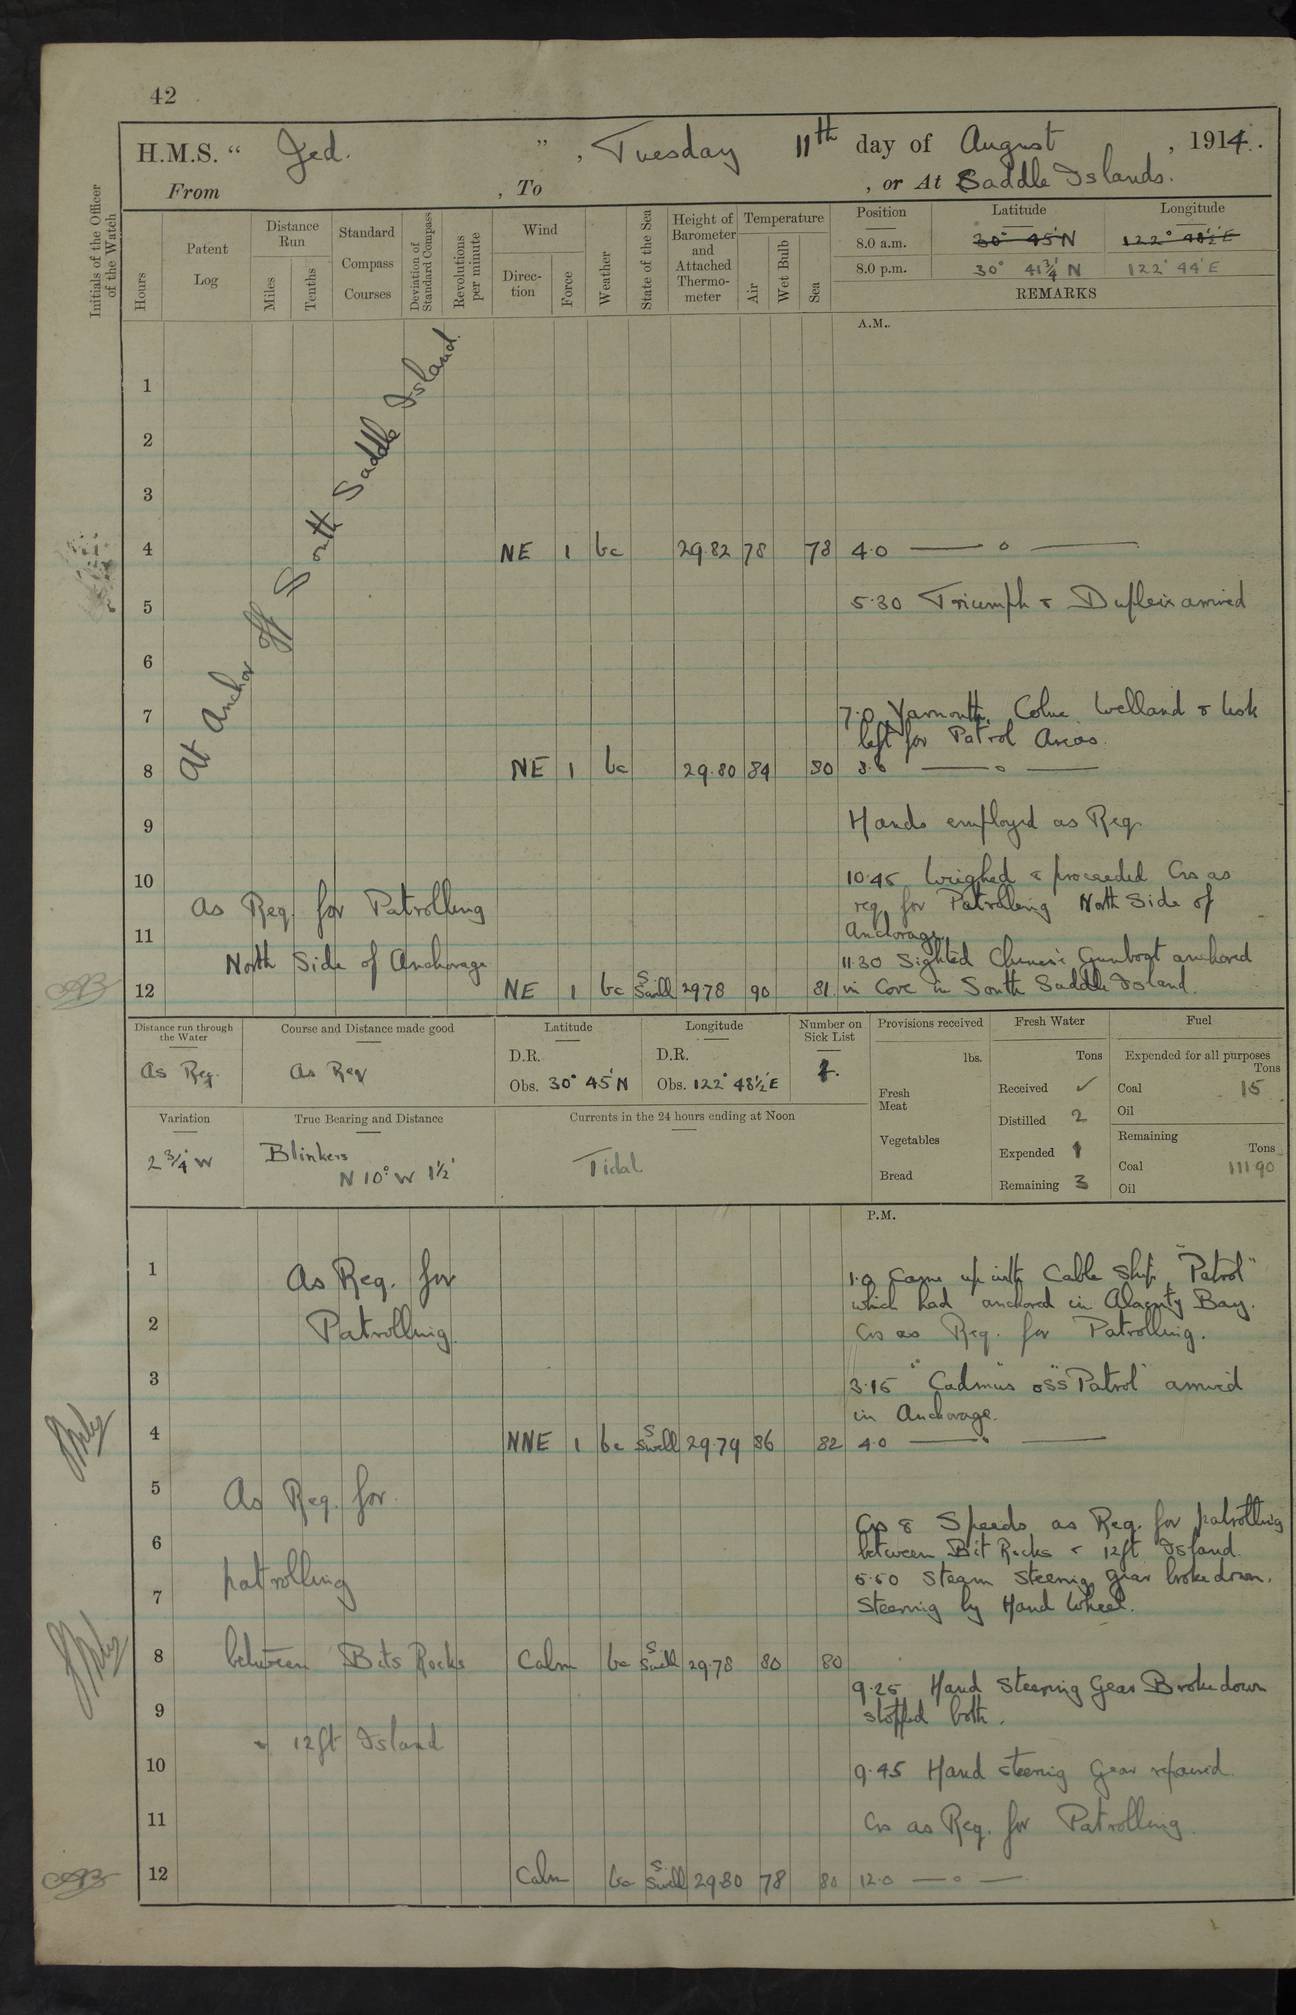 42
H.M.S. “ Jed. ” , Tuesday 11th day of August , 1914.
From , To , or At Saddle Islands.
Initials of the Officer of the Watch
Hours
Patent Log
Distance Run
Miles
Tenths
Standard Compass Courses
Deviation of Standard Compass
Revolutions per minute
Wind
Direc-tion
Force
Weather
State of the Sea
Height of Barometer and Attached Thermo-meter
Temperature
Air
Wet Bulb
Sea
Position Latitude Longitude
8.0 a.m. 30° 45' N 122° 48½' E
8.0 p.m. 30° 41¾' N 122° 44' E
REMARKS
A.M.
At Anchor off South Saddle Island.
1
2
3
4 NE 1 bc 29.82 78 78 4.0 — o —
5 5.30 Triumph & Dupleix arrived
6
7 7.0 Yarmouth, Colne Welland & Usk
left for Patrol Areas.
8 NE 1 bc 29.80 84 80 8.0 — o —
9 Hands employed as Req.
10 10.45 Weighed & proceeded Crs as
As Req. for Patrolling req. for Patrolling North Side of
11 Anchorage.
North Side of Anchorage 11.30 Sighted Chinese Gunboat anchored
12 NE 1 bc S Swell 29.78 90 81 in Cove in South Saddle Island.
Distance run through the Water
As Req.
Course and Distance made good
As Req
Latitude
D.R.
Obs. 30° 45' N
Longitude
D.R.
Obs. 122° 48½' E
Number on Sick List
Provisions received
lbs.
Fresh Meat
Vegetables
Bread
Fresh Water
Tons
Received ✓
Distilled 2
Expended 1
Remaining 3
Fuel
Expended for all purposes
Tons
Coal 15
Oil
Remaining
Tons
Coal 111.90
Oil
Variation
2¾° W
True Bearing and Distance
Blinkers
N 10° W 1½'
Currents in the 24 hours ending at Noon
Tidal
P.M.
1 As Req. for 1.0 Came up with Cable Ship "Patrol"
which had anchored in Alacrity Bay.
2 Patrolling. Crs as Req. for Patrolling.
3 3.15 "Cadmus" & SS "Patrol" arrived
in Anchorage.
4 NNE 1 bc S Swell 29.79 86 82 4.0 — " —
5 As Req. for
6 Crs & Speeds as Req. for patrolling
between Bit Rocks & 12ft Island.
patrolling 5.50 Steam Steering gear broke down.
7 Steering by Hand Wheel.
8 between Bits Rocks Calm bc S Swell 29.78 80 80
9.25 Hand Steering Gear Broke down
9 stopped both.
& 12ft Island
10 9.45 Hand steering Gear repaired.
11 Crs as Req. for Patrolling.
12 Calm bc S. Swell 29.80 78 80 12.0 — o —